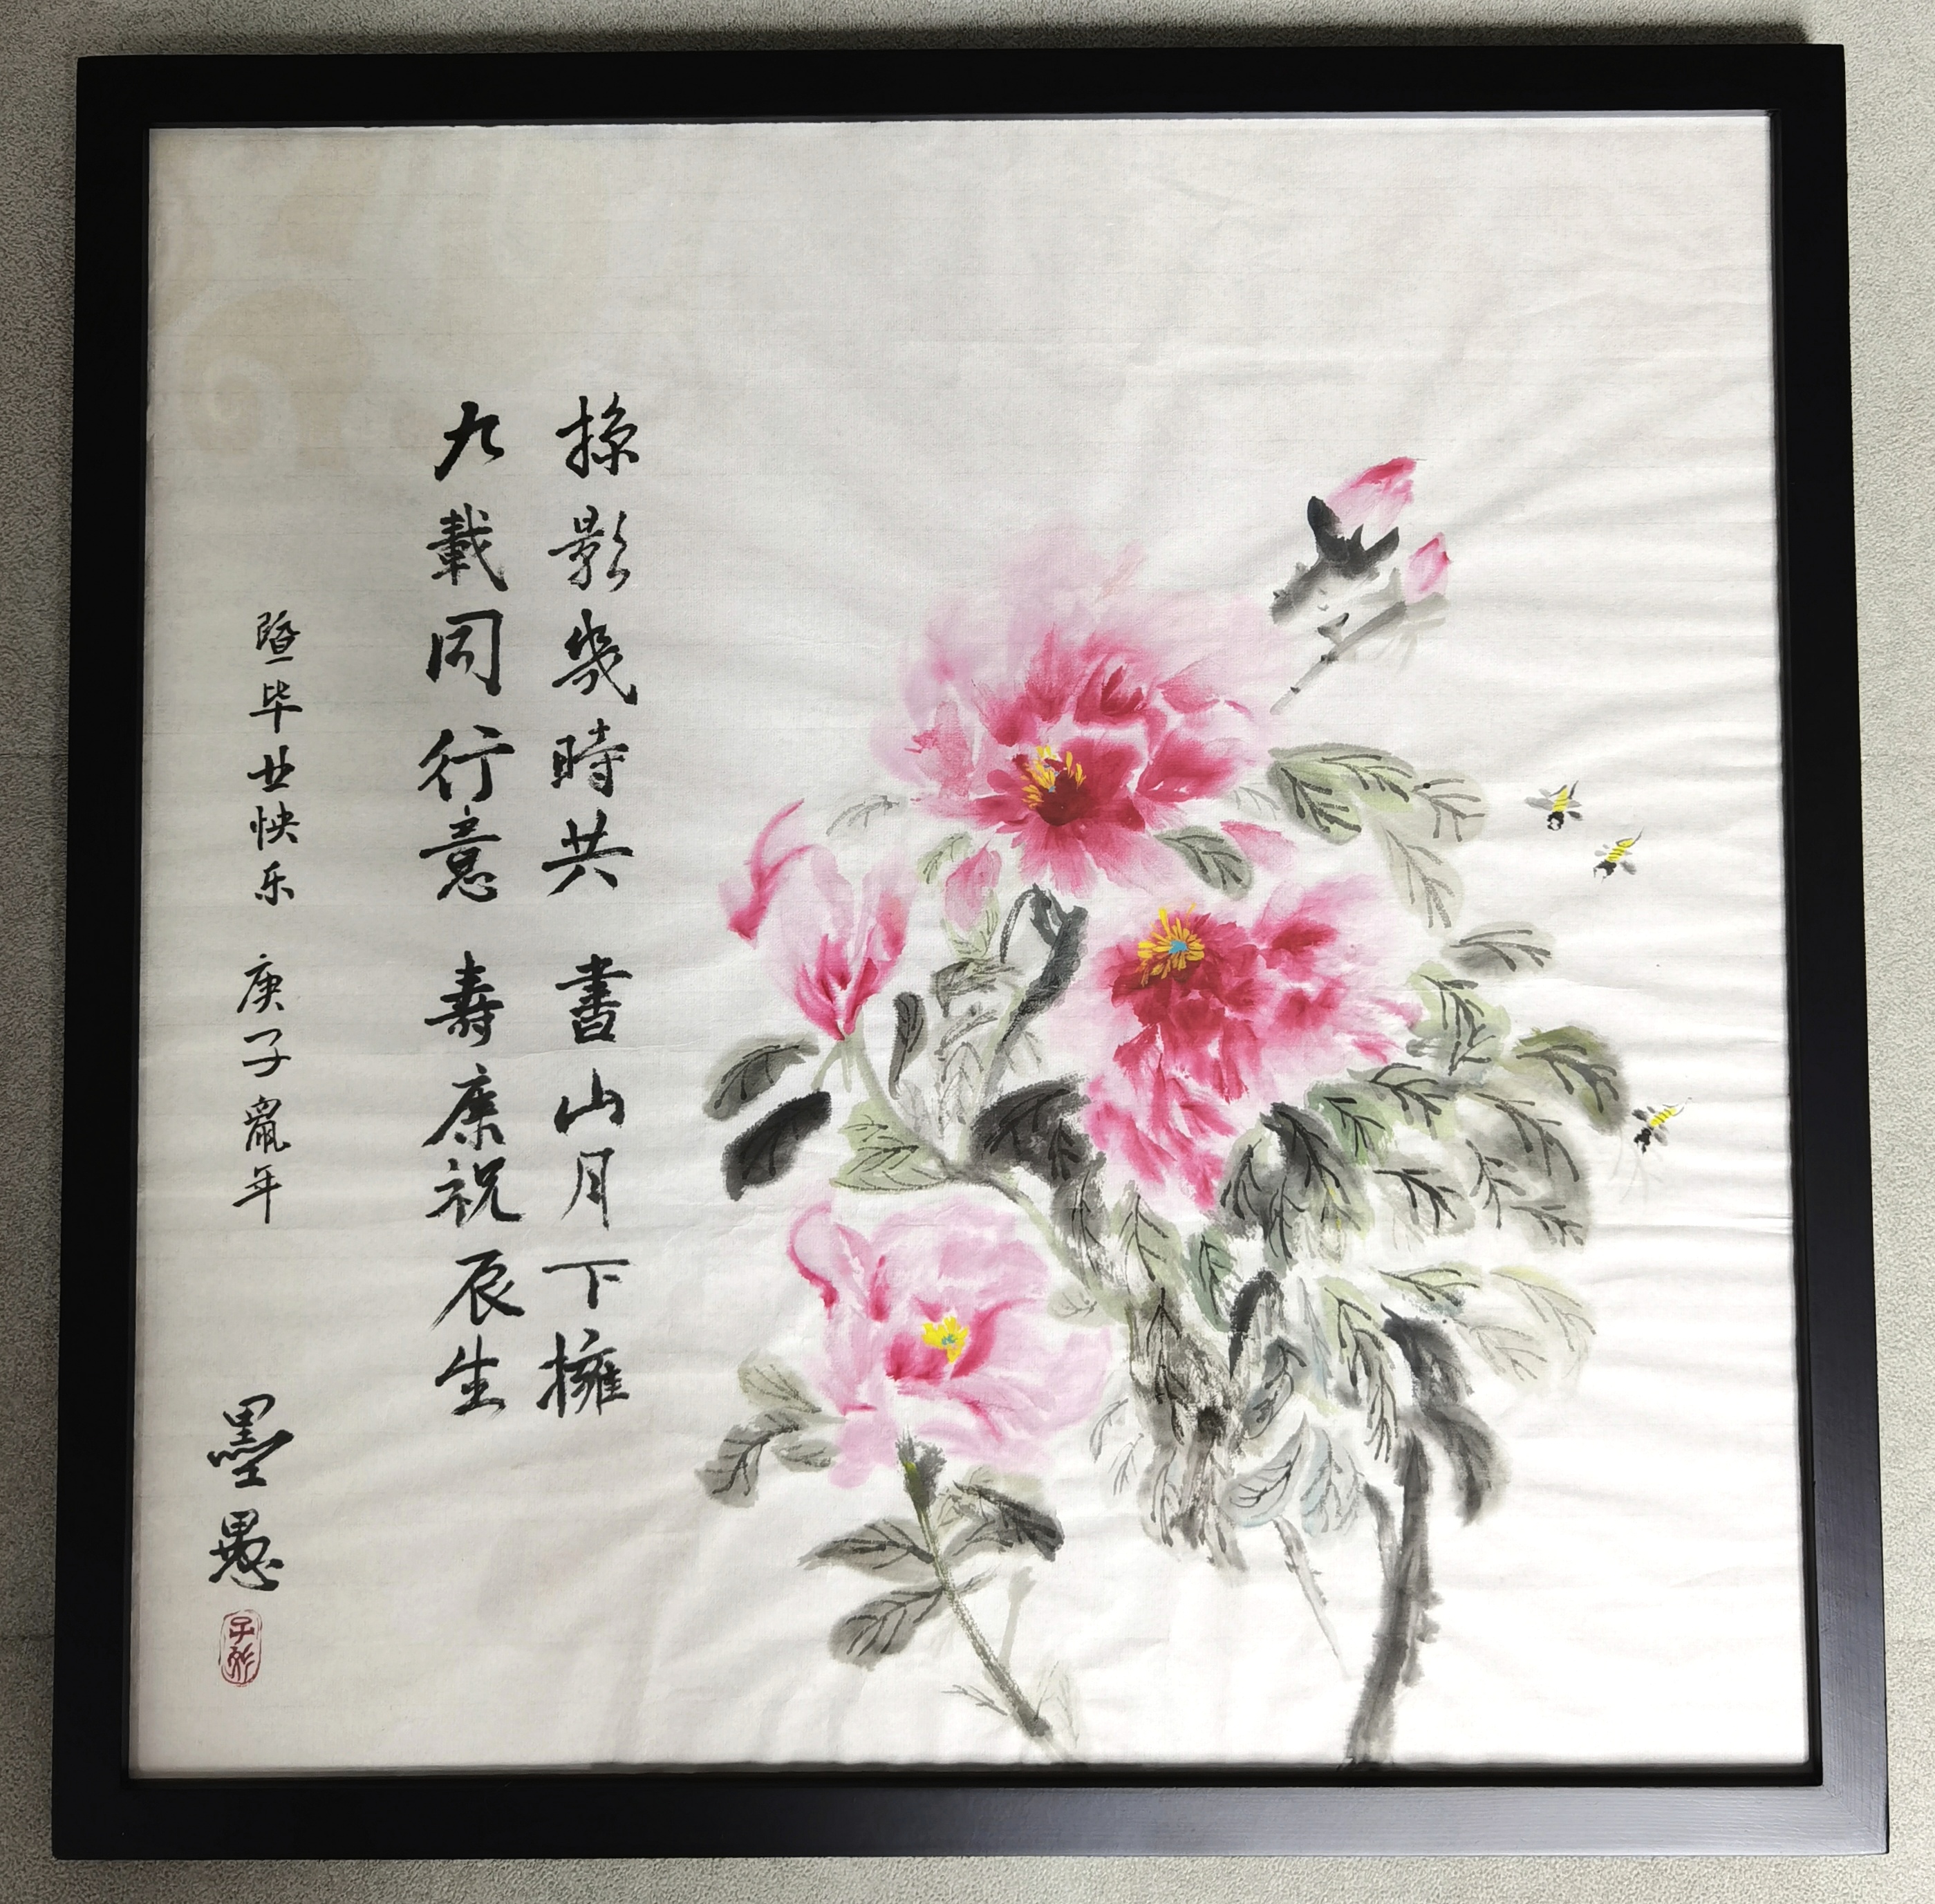 掠影幾時共 書山月下擁
九載同行意 壽康祝辰生
暨毕业快乐 庚子鼠年 墨愚